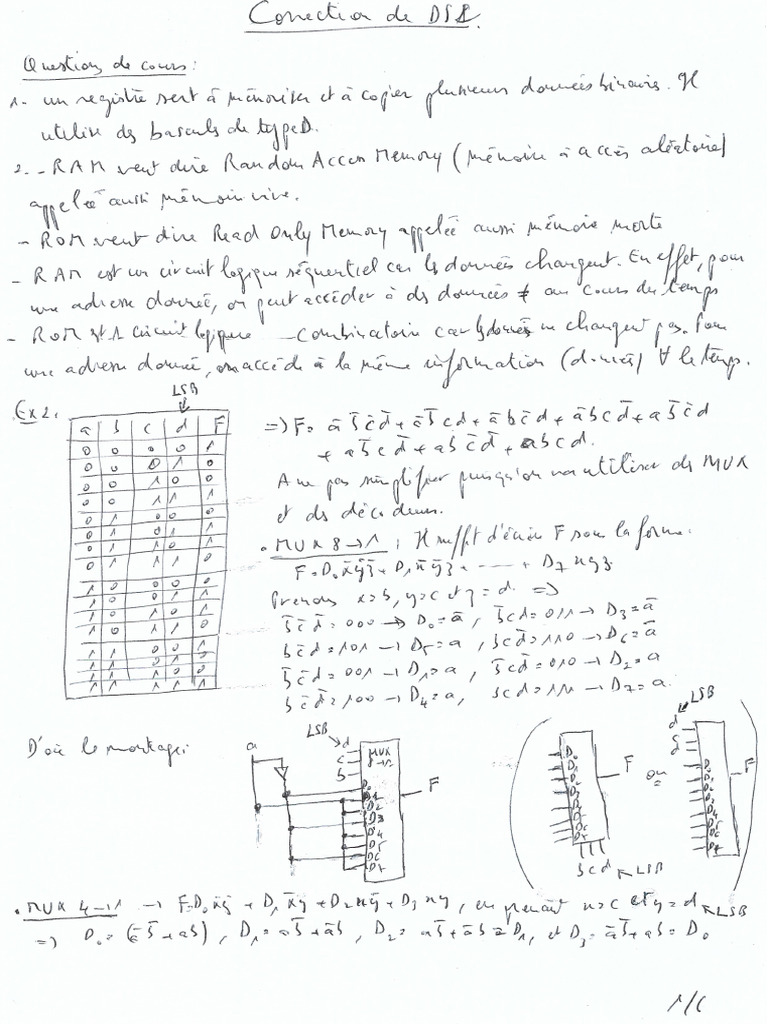 Correction de DS1.
Question de cours :
1- un registre sert à mémoriser et à copier plusieurs données binaires. Il
utilise des bascules de type D.
2. - RAM veut dire Random Access Memory (mémoire à accès aléatoire)
appelée aussi mémoire vive.
- ROM veut dire Read Only Memory appelée aussi mémoire morte
- RAM est un circuit logique séquentiel car les données changent. En effet, pour
une adresse donnée, on peut accéder à des données ≠ au cours du temps
- ROM est 1 circuit logique combinatoire car les données ne changent pas. Pour
une adresse donnée, on accède à la même information (données) ∀ le temps.
Ex2.
LSB
a b c d F
0 0 0 0 1
0 0 0 1 0
0 0 1 0 0
0 0 1 1 1
=> F = a̅ b̅ c̅ d̅ + a̅ b̅ c d + a̅ b c̅ d + a̅ b c d̅ + a b̅ c̅ d
+ a b̅ c d̅ + a b c̅ d̅ + a b c d.
A ne pas simplifier puisqu'on va utiliser des MUX
et des décodeurs.
. MUX 8→1 : Il suffit d'écrire F sous la forme:
F = D0 x̅ y̅ z̅ + D1 x̅ y̅ z + ...... + D7 x y z.
Prenons x = b, y = c et z = d. =>
D'où le montage:
a
LSB
d
c
b
MUX
8→1
D0
D1
D2
D3
D4
D5
D6
D7
F
D0
D1
D2
D3
D4
D5
D6
D7
F
b c d
LSB
ou
LSB
d
c
b
D0
D1
D2
D3
D4
D5
D6
D7
F
. MUX 4→1 → F = D0 x̅ y̅ + D1 x̅ y + D2 x y̅ + D3 x y, en prenant x = c et y = d
LSB
=> D0 = (a̅ b̅ + a b), D1 = a b̅ + a̅ b, D2 = a b̅ + a̅ b = D1, et D3 = a̅ b̅ + a b = D0
1/6